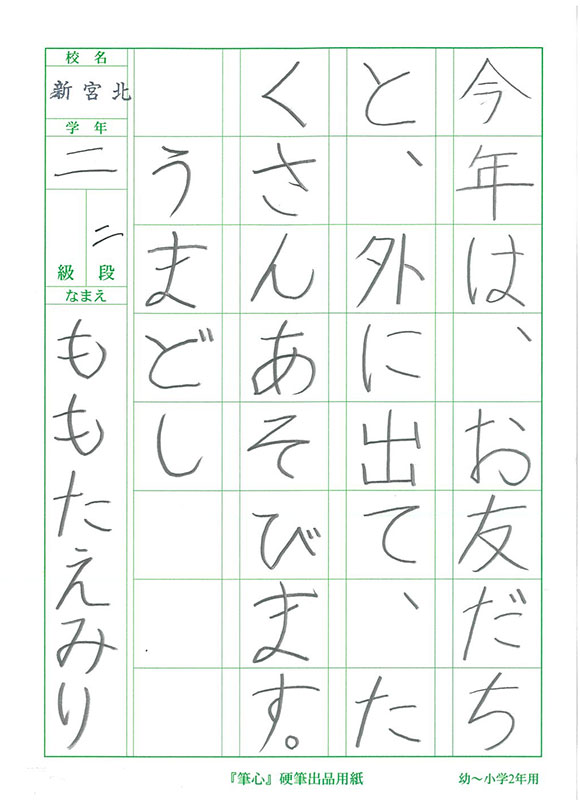 今年は、お友だち
と、外に出て、た
くさんあそびます。
うまどし
校名
新宮北
学年
二
二段
級
なまえ
ももたえみり
『筆心』硬筆出品用紙
幼〜小学2年用